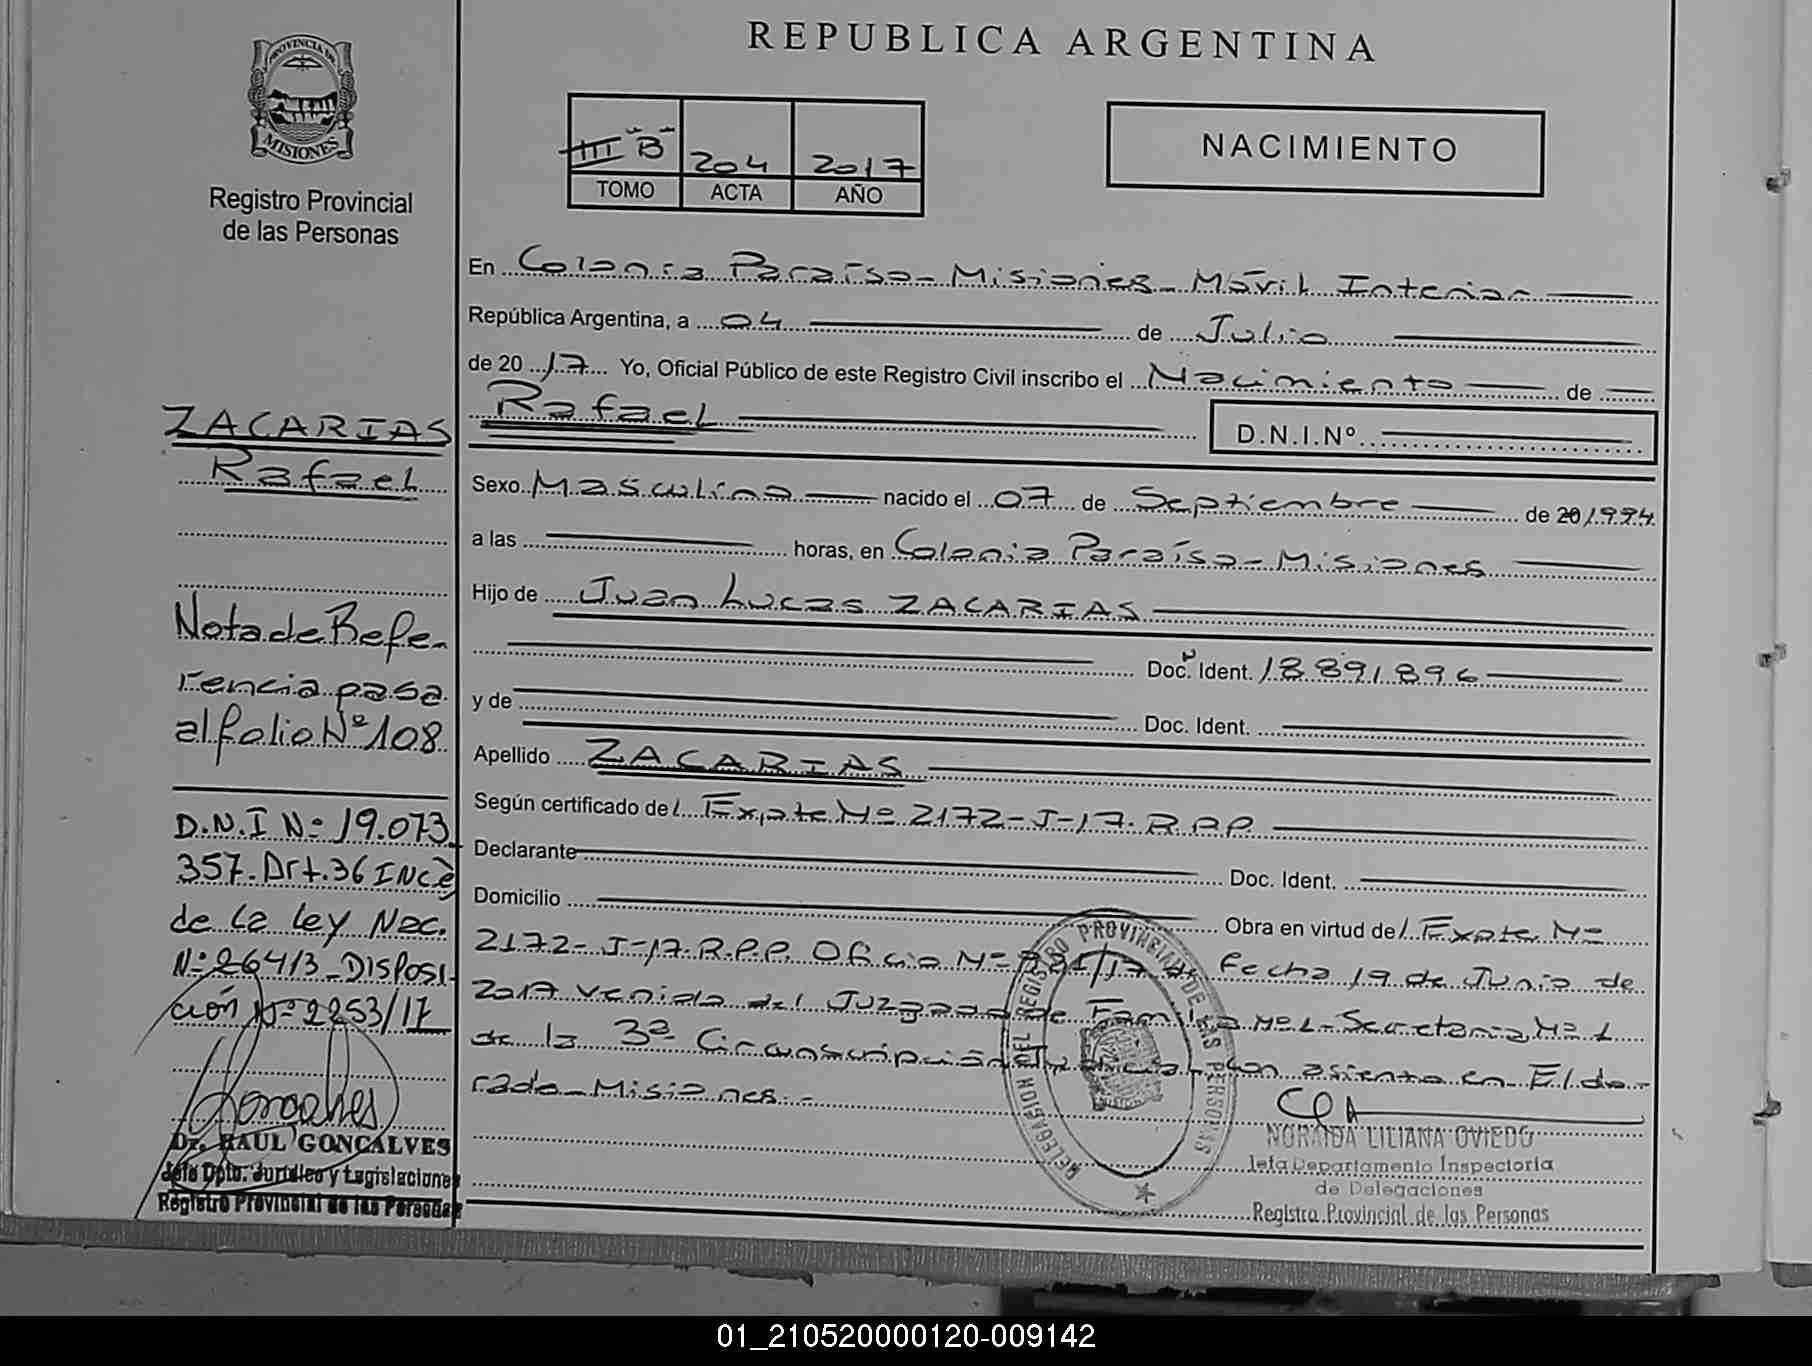 REPUBLICA ARGENTINA
PROVINCIA DE
MISIONES
Registro Provincial
de las Personas
III "B" 204 2017
TOMO ACTA AÑO
NACIMIENTO
En Colonia Paraíso - Misiones - Móvil Interior
República Argentina, a 04 de Julio
de 2017 Yo, Oficial Público de este Registro Civil inscribo el Nacimiento de
Rafael D.N.I.Nº
Sexo Masculino nacido el 07 de Septiembre de 20 1994
a las horas, en Colonia Paraíso - Misiones
Hijo de Juan Lucas ZACARIAS
Doc. Ident. 18891896
y de Doc. Ident.
Apellido ZACARIAS
Según certificado de/. Expte Nº 2172-J-17. R.P.P.
Declarante Doc. Ident.
Domicilio Obra en virtud de/. Expte Nº
2172-J-17.R.P.P. Oficio Nº /17 de fecha 19 de Junio de
2017 venido del Juzgado de Familia Nº 1 - Secretaria Nº 1
de la 3ª Circunscripción Judicial con asiento en Eldo-
rado - Misiones.-
ZACARIAS
Rafael
Nota de Refe-
rencia pasa
al folio Nº 108
D.N.I Nº 19.073.
357. Art. 36 INC
de la Ley Nac.
Nº 26413 - DISPOSI-
ción Nº 2253/17
Goncalves
Dr. RAUL GONCALVES
Jefe Dpto. Jurídico y Legislaciones
Registro Provincial de las Personas
DELEGACION DEL REGISTRO PROVINCIAL DE LAS PERSONAS
NORAIDA LILIANA OVIEDO
Jefa Departamento Inspectoria
de Delegaciones
Registro Provincial de las Personas
01_210520000120-009142